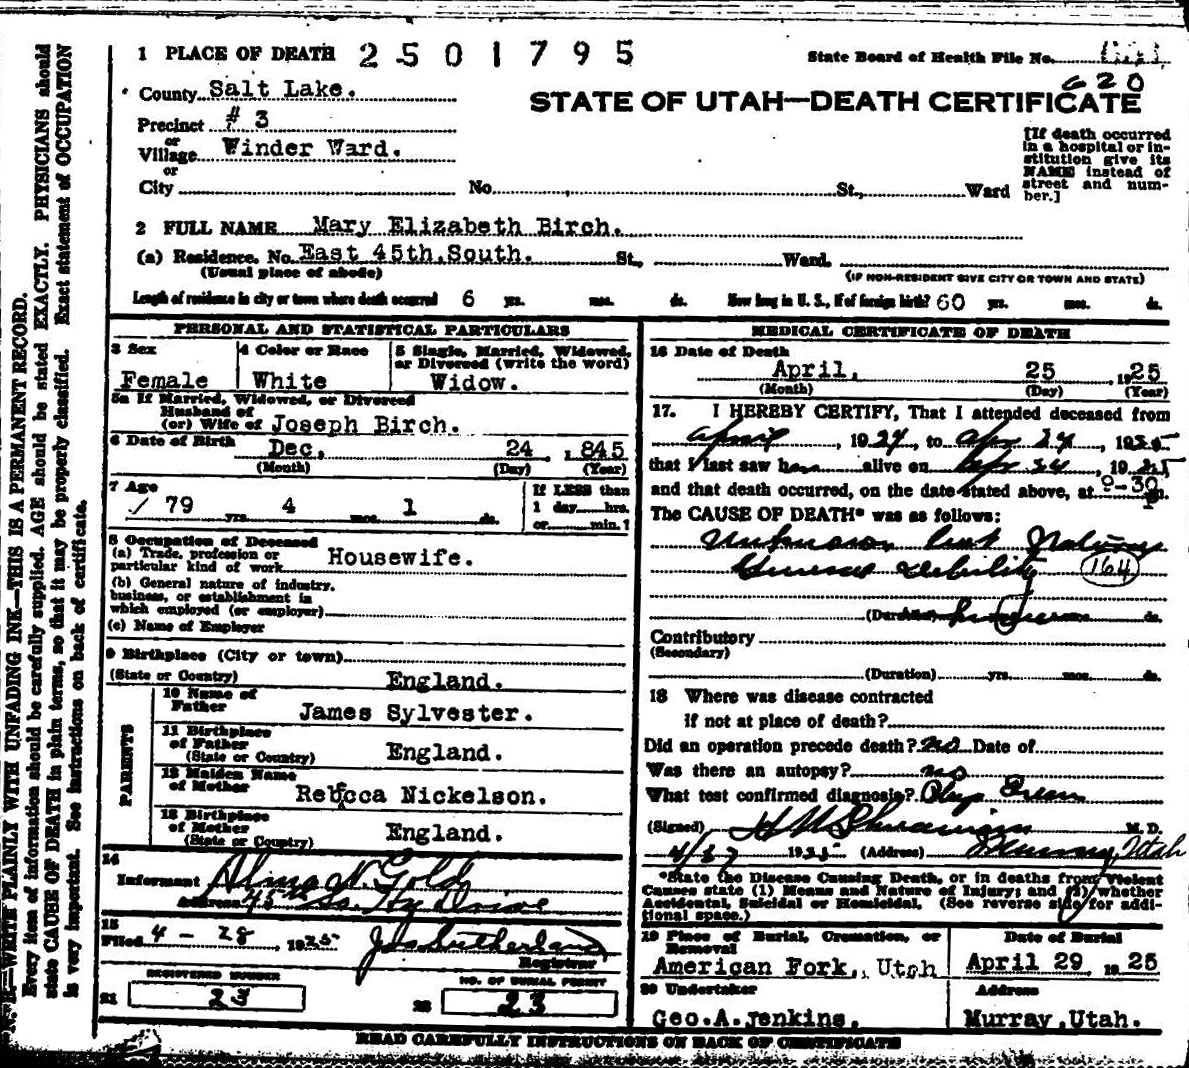 1 PLACE OF DEATH 2501795
State Board of Health File No.
620
STATE OF UTAH—DEATH CERTIFICATE
County Salt Lake.
Precinct # 3
or
Village Winder Ward.
or
City No. St., Ward
[If death occurred
in a hospital or in-
stitution give its
NAME instead of
street and num-
ber.]
2 FULL NAME Mary Elizabeth Birch.
(a) Residence. No. East 45th.South. St., Ward.
(Usual place of abode)
(IF NON-RESIDENT GIVE CITY OR TOWN AND STATE)
Length of residence in city or town where death occurred 6 yrs. mos. ds. How long in U. S., if of foreign birth? 60 yrs. mos. ds.
PERSONAL AND STATISTICAL PARTICULARS
3 Sex
Female
4 Color or Race
White
5 Single, Married, Widowed,
or Divorced (write the word)
Widow.
5a If Married, Widowed, or Divorced
Husband of
(or) Wife of Joseph Birch.
6 Date of Birth Dec. 24 1845
(Month) (Day) (Year)
7 Age
79 yrs. 4 mos. 1 ds.
If LESS than
1 day hrs.
or min. ?
8 Occupation of Deceased
(a) Trade, profession or
particular kind of work Housewife.
(b) General nature of industry,
business, or establishment in
which employed (or employer)
(c) Name of Employer
9 Birthplace (City or town)
(State or Country) England.
PARENTS
10 Name of
Father James Sylvester.
11 Birthplace
of Father
(State or Country) England.
12 Maiden Name
of Mother Rebecca Nickelson.
13 Birthplace
of Mother
(State or Country) England.
14
Informant Alma N. Gold
Address 45th So. Hy Drive
15
Filed 4-28, 1925 Jas Sutherland
Registrar
REGISTERED NUMBER
21 23
NO. OF BURIAL PERMIT
22 23
MEDICAL CERTIFICATE OF DEATH
16 Date of Death
April, 25, 1925
(Month) (Day) (Year)
17. I HEREBY CERTIFY, That I attended deceased from
April, 1924, to Apr 24, 1925
that I last saw her alive on Apr 24, 1925
and that death occurred, on the date stated above, at 9-30 m.
The CAUSE OF DEATH* was as follows:
Unknown but
General debility 164
(Duration) mos. ds.
Contributory
(Secondary)
(Duration) yrs. mos. ds.
18 Where was disease contracted
if not at place of death?
Did an operation precede death? no Date of
Was there an autopsy? no
What test confirmed diagnosis? Phys Exam
(Signed) M. D.
4/27 1925 (Address) Murray, Utah
*State the Disease Causing Death, or in deaths from Violent
Causes state (1) Means and Nature of Injury; and (2) whether
Accidental, Suicidal or Homicidal. (See reverse side for addi-
tional space.)
19 Place of Burial, Cremation, or
Removal
American Fork, Utah
Date of Burial
April 29 1925
20 Undertaker
Geo.A.Jenkins.
Address
Murray,Utah.
READ CAREFULLY INSTRUCTIONS ON BACK OF CERTIFICATE
N. B.—WRITE PLAINLY WITH UNFADING INK—THIS IS A PERMANENT RECORD.
Every item of information should be carefully supplied. AGE should be stated EXACTLY. PHYSICIANS should
state CAUSE OF DEATH in plain terms, so that it may be properly classified. Exact statement of OCCUPATION
is very important. See instructions on back of certificate.